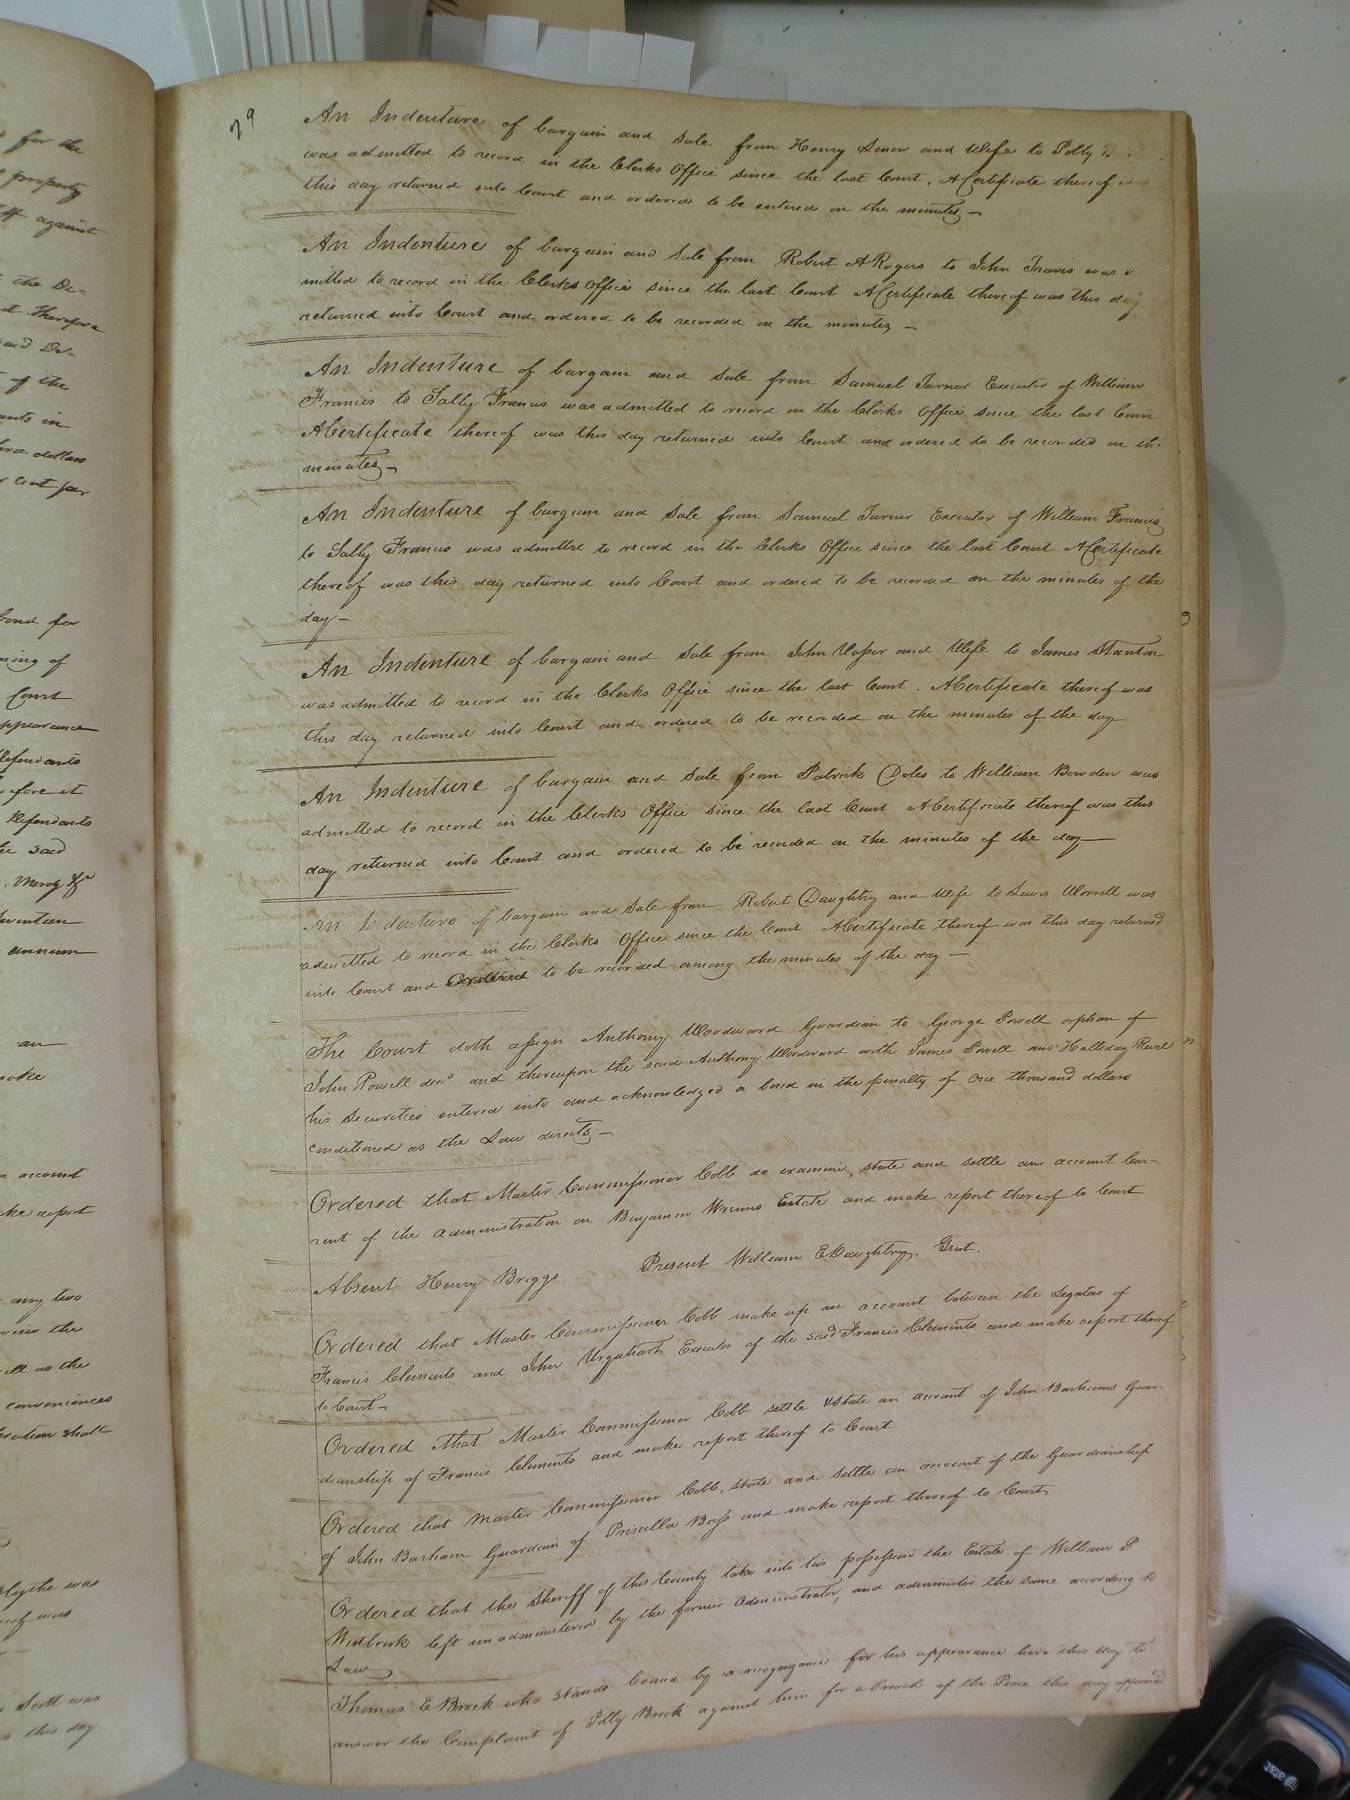 29
An Indenture of bargain and Sale from Henry Simon and Wife to Polly
was admitted to record in the Clerks Office since the last Court. A Certificate thereof
this day returned into Court and ordered to be entered on the minutes —
An Indenture of bargain and Sale from Robert A Rogers to John Travis was
mitted to record in the Clerks Office since the last Court A Certificate thereof was this day
returned into Court and ordered to be recorded on the minutes —
An Indenture of bargain and Sale from Samuel Turner Executor of William
Francis to Sally Francis was admitted to record in the Clerks Office since the last Cour
A Certificate thereof was this day returned into Court and ordered to be recorded on th
minutes —
An Indenture of bargain and Sale from Samuel Turner Executor of William Francis
to Sally Francis was admitted to record in the Clerks Office since the last Court A Certificate
thereof was this day returned into Court and ordered to be recorded on the minutes of the
day —
An Indenture of bargain and Sale from John Vasser and Wife to James Stanton
was admitted to record in the Clerks Office since the last Court. A Certificate thereof was
this day returned into Court and ordered to be recorded on the minutes of the day
An Indenture of bargain and Sale from Patrick Doles to William Bowden was
admitted to record in the Clerks Office since the last Court A Certificate thereof was this
day returned into Court and ordered to be recorded on the minutes of the day —
An Indenture of bargain and Sale from Robert Daughtry and Wife to Lewis Worrell was
admitted to record in the Clerks Office since the Court A Certificate thereof was this day returned
into Court and Ordered to be recorded among the minutes of the day —
The Court doth assign Anthony Woodward Guardian to George Powell orphan of
John Powell decd and thereupon the said Anthony Woodward with James Powell and Halliday Revel
his Securities entered into and acknowledged a bond in the penalty of One thousand dollars
conditioned as the Law directs —
Ordered that Master Commissioner Cobb do examine, state and settle an account Cur-
rent of the administration on Benjamin Estate and make report thereof to Court
Absent Henry Briggs Present William E Daughtry Gent.
Ordered that Master Commissioner Cobb make up an account between the Legatees of
Francis Clements and John Urquhart Executor of the said Francis Clements and make report thereof
to Court —
Ordered That Master Commissioner Cobb settle & State an account of John Barhams Guar
dianship of Francis Clements and make report thereof to Court
Ordered that Master Commissioner Cobb, state and settle an account of the Guardianship
of John Barham Guardian of Priscilla Bass and make report thereof to Court
Ordered that the Sheriff of this County take into his possession the Estate of William P
Westbrook left unadministered by the former administrator, and administer the same according to
Law
Thomas E Brock who stands bound by a recognizance for his appearance here this day to
answer the Complaint of Polly Brock against him for a breach of the Peace this day appeared